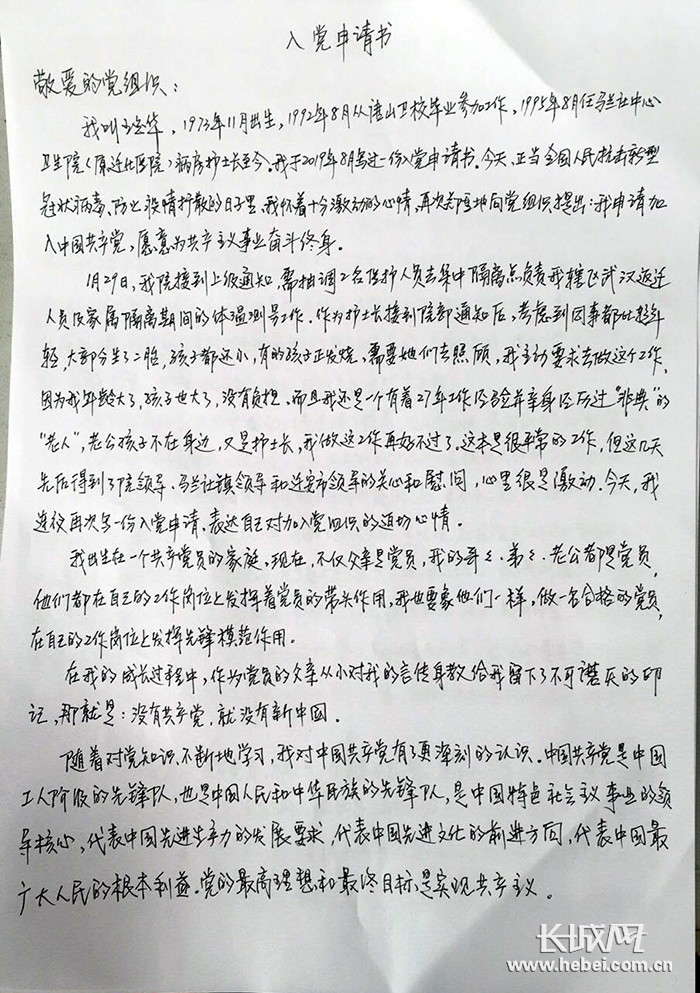 入党申请书
敬爱的党组织：
我叫王兰华，1973年11月出生，1992年8月从唐山卫校毕业参加工作，1995年8月任马兰庄中心
卫生院（原迁北医院）病房护士长至今。我于2019年8月写过一份入党申请书。今天、正当全国人民抗击新型
冠状病毒、防止疫情扩散的日子里、我怀着十分激动的心情、再次郑重地向党组织提出：我申请加
入中国共产党，愿意为共产主义事业奋斗终身。
1月29日，我院接到上级通知，需抽调2名医护人员去集中隔离点负责我辖区武汉返迁
人员及家属隔离期间的体温测量工作。作为护士长接到院部通知后，考虑到同事都比较年
轻，大部分生了二胎，孩子都还小，有的孩子正发烧、需要她们去照顾，我主动要求去做这个工作，
因为我年龄大了，孩子也大了，没有负担。而且我还是一个有着27年工作经验并亲身经历过“非典”的
“老人”，老公孩子不在身边，又是护士长，我做这工作再好不过了。这本是很平常的工作，但这几天
先后得到了院领导、马兰庄镇领导和迁安市领导的关心和慰问，心里很是激动。今天，我
连夜再次写一份入党申请、表达自己对加入党组织的迫切心情。
我出生在一个共产党员的家庭，现在，不仅父亲是党员，我的哥哥、弟弟、老公都是党员，
他们都在自己的工作岗位上发挥着党员的带头作用，我也要象他们一样，做一名合格的党员，
在自己的工作岗位上发挥先锋模范作用。
在我的成长过程中，作为党员的父亲从小对我的言传身教给我留下了不可磨灭的印
记，那就是：没有共产党，就没有新中国。
随着对党知识不断地学习，我对中国共产党有了更深刻的认识。中国共产党是中国
工人阶级的先锋队，也是中国人民和中华民族的先锋队，是中国特色社会主义事业的领
导核心，代表中国先进生产力的发展要求，代表中国先进文化的前进方向，代表中国最
广大人民的根本利益。党的最高理想和最终目标是实现共产主义。
长城网
www.hebei.com.cn